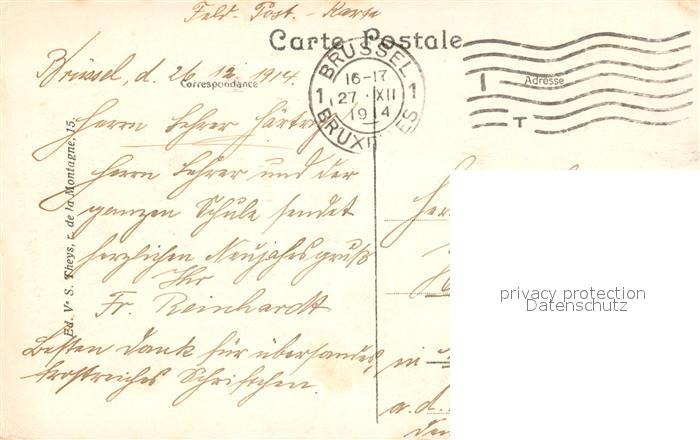 Feld-Post-Karte
Carte Postale
Brüssel, d. 26.12.1914.
Correspondance
Adresse
BRUSSEL
1 16-17 1
27 XII
1914
BRUXELLES
T
Herrn Lehrer
Herrn Lehrer und der
ganzen Schule sendet
herzlichen Neujahrsgruß
Ihr
Fr. Reinhardt
Besten Dank für übersandtes
trostreiches Schriftchen.
Ed. Vᵉ S. Theys, r. de la Montagne, 15.
in
a.d.
privacy protection
Datenschutz